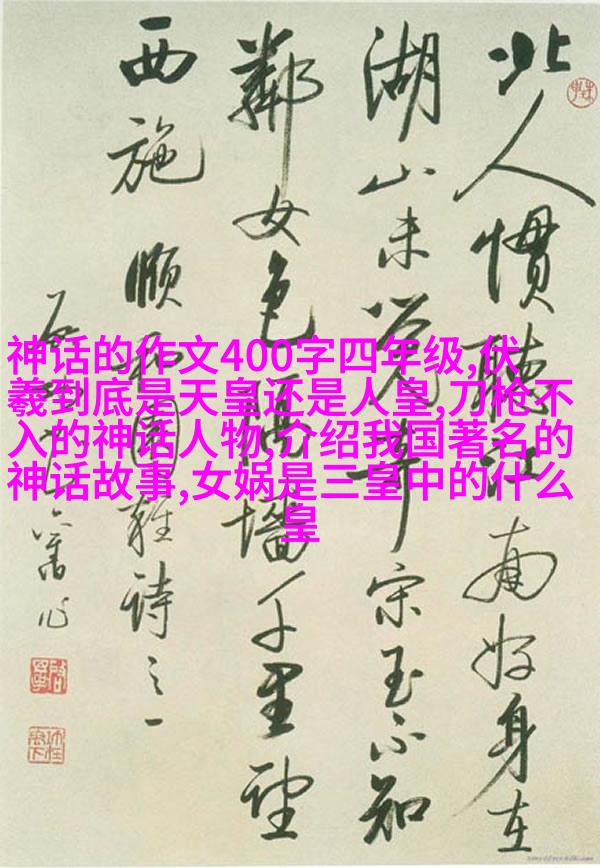 北人慣聽江南好身在
湖山未覺奇宋玉不知
鄰女色隔墻千里望
西施 頤和園雜詩之一
舊作
神话的作文400字四年级,伏
羲到底是天皇还是人皇,刀枪不
入的神话人物,介绍我国著名的
神话故事,女娲是三皇中的什么
皇